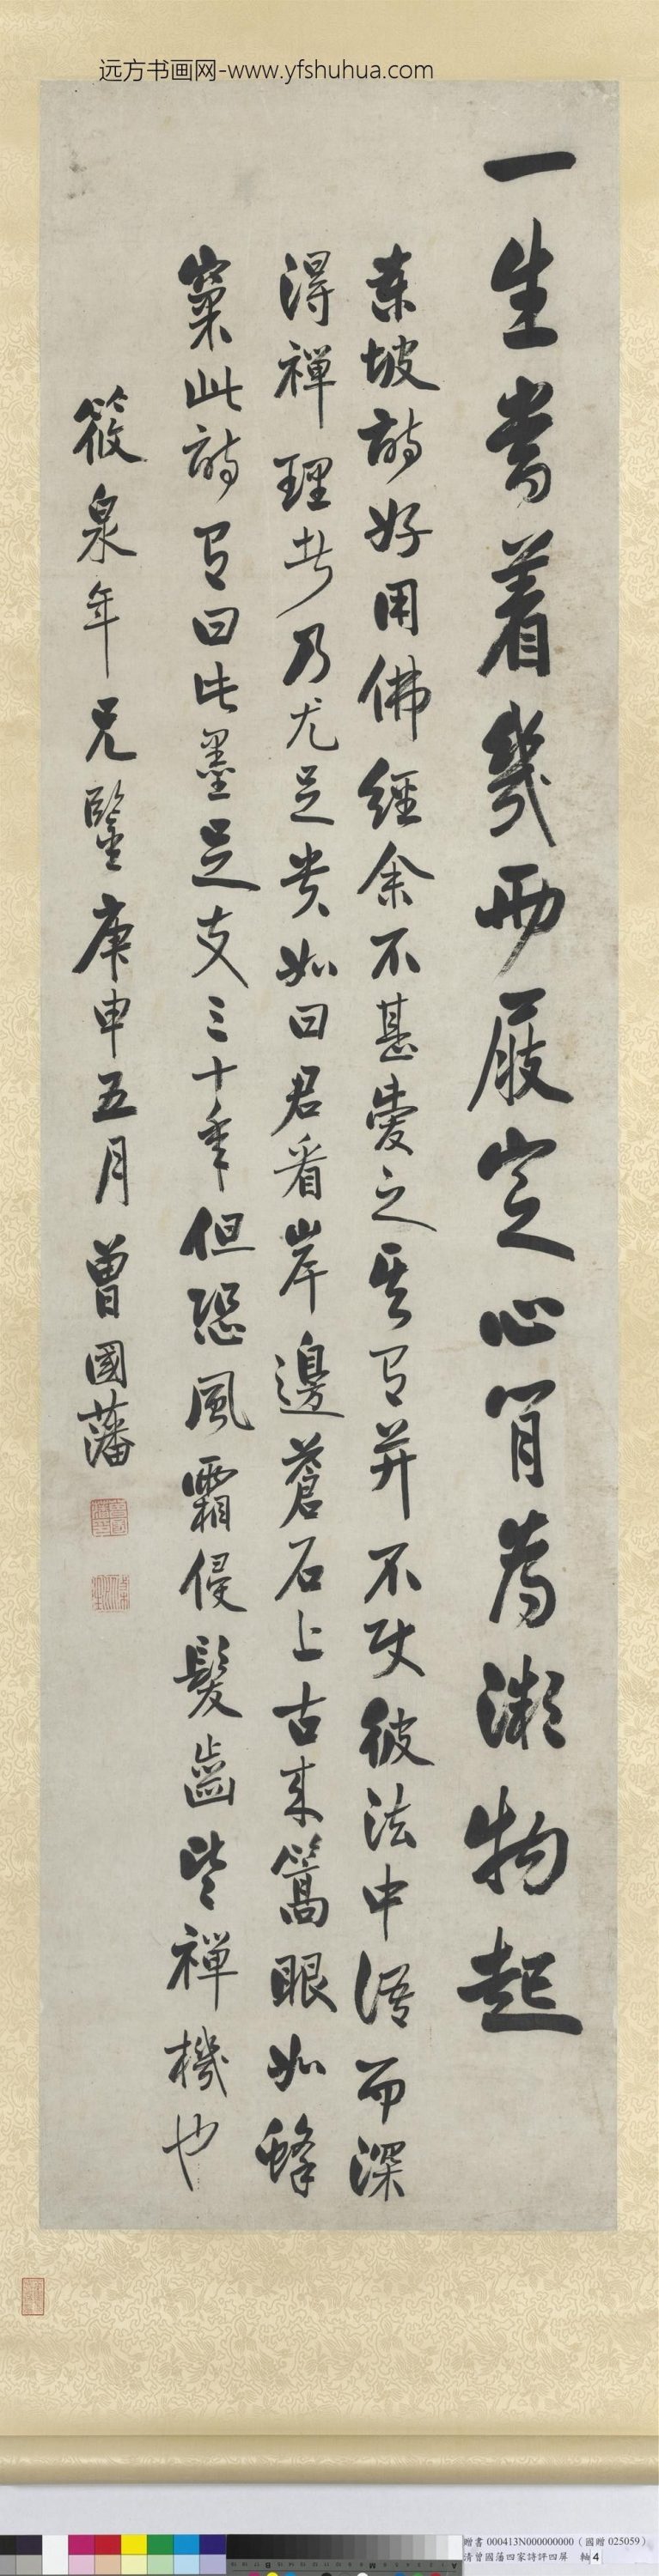 远方书画网-www.yfshuhua.com
一生當着幾兩屐定心肯為微物起
東坡詩好用佛經余不甚愛之其有并不使彼法中語而深
得禪理者乃尤足貴如曰君看岸邊蒼石上古來篙眼如蜂
窠此詩有曰此墨足支三十年但恐風霜侵髮齒皆禪機也
筱泉年兄鑒庚申五月曾國藩
贈書 000413N000000000（國贈 025059）
清曾國藩四家詩評四屏 軸4